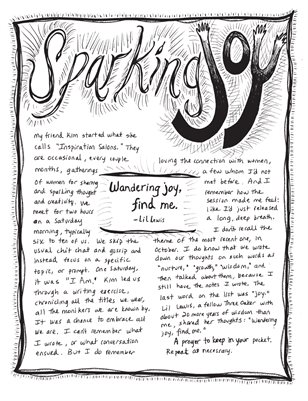 Sparking JOY
my friend Kim started what she
calls "Inspiration Salons." They
are occasional, every couple
months, gatherings
of women for sharing
and sparking thought
and creativity. We
meet for two hours
on a Saturday
morning, typically
six to ten of us. We skip the
usual chit chat and gossip and
instead, focus on a specific
topic, or prompt. One Saturday,
it was "I Am." Kim led us
through a writing exercise,
chronicling all the titles we wear,
all the monikers we are known by.
It was a chance to embrace all
we are. I can't remember what
I wrote, or what conversation
ensued. But I do remember
Wandering joy,
find me.
-Lil Lewis
loving the connection with women,
a few whom I'd not
met before. And I
remember how the
session made me feel:
Like I'd just released
a long, deep breath.
I don't recall the
theme of the most recent one, in
October. I do know that we wrote
down our thoughts on words such as
"nurture," "growth," "wisdom," and
then talked about them, because I
still have the notes I wrote. The
last word on the list was "joy."
Lil Lewis, a fellow Three Oaker with
about 20 more years of wisdom than
me, shared her thoughts: "Wandering
joy, find me."
A prayer to keep in your pocket.
Repeat as necessary.